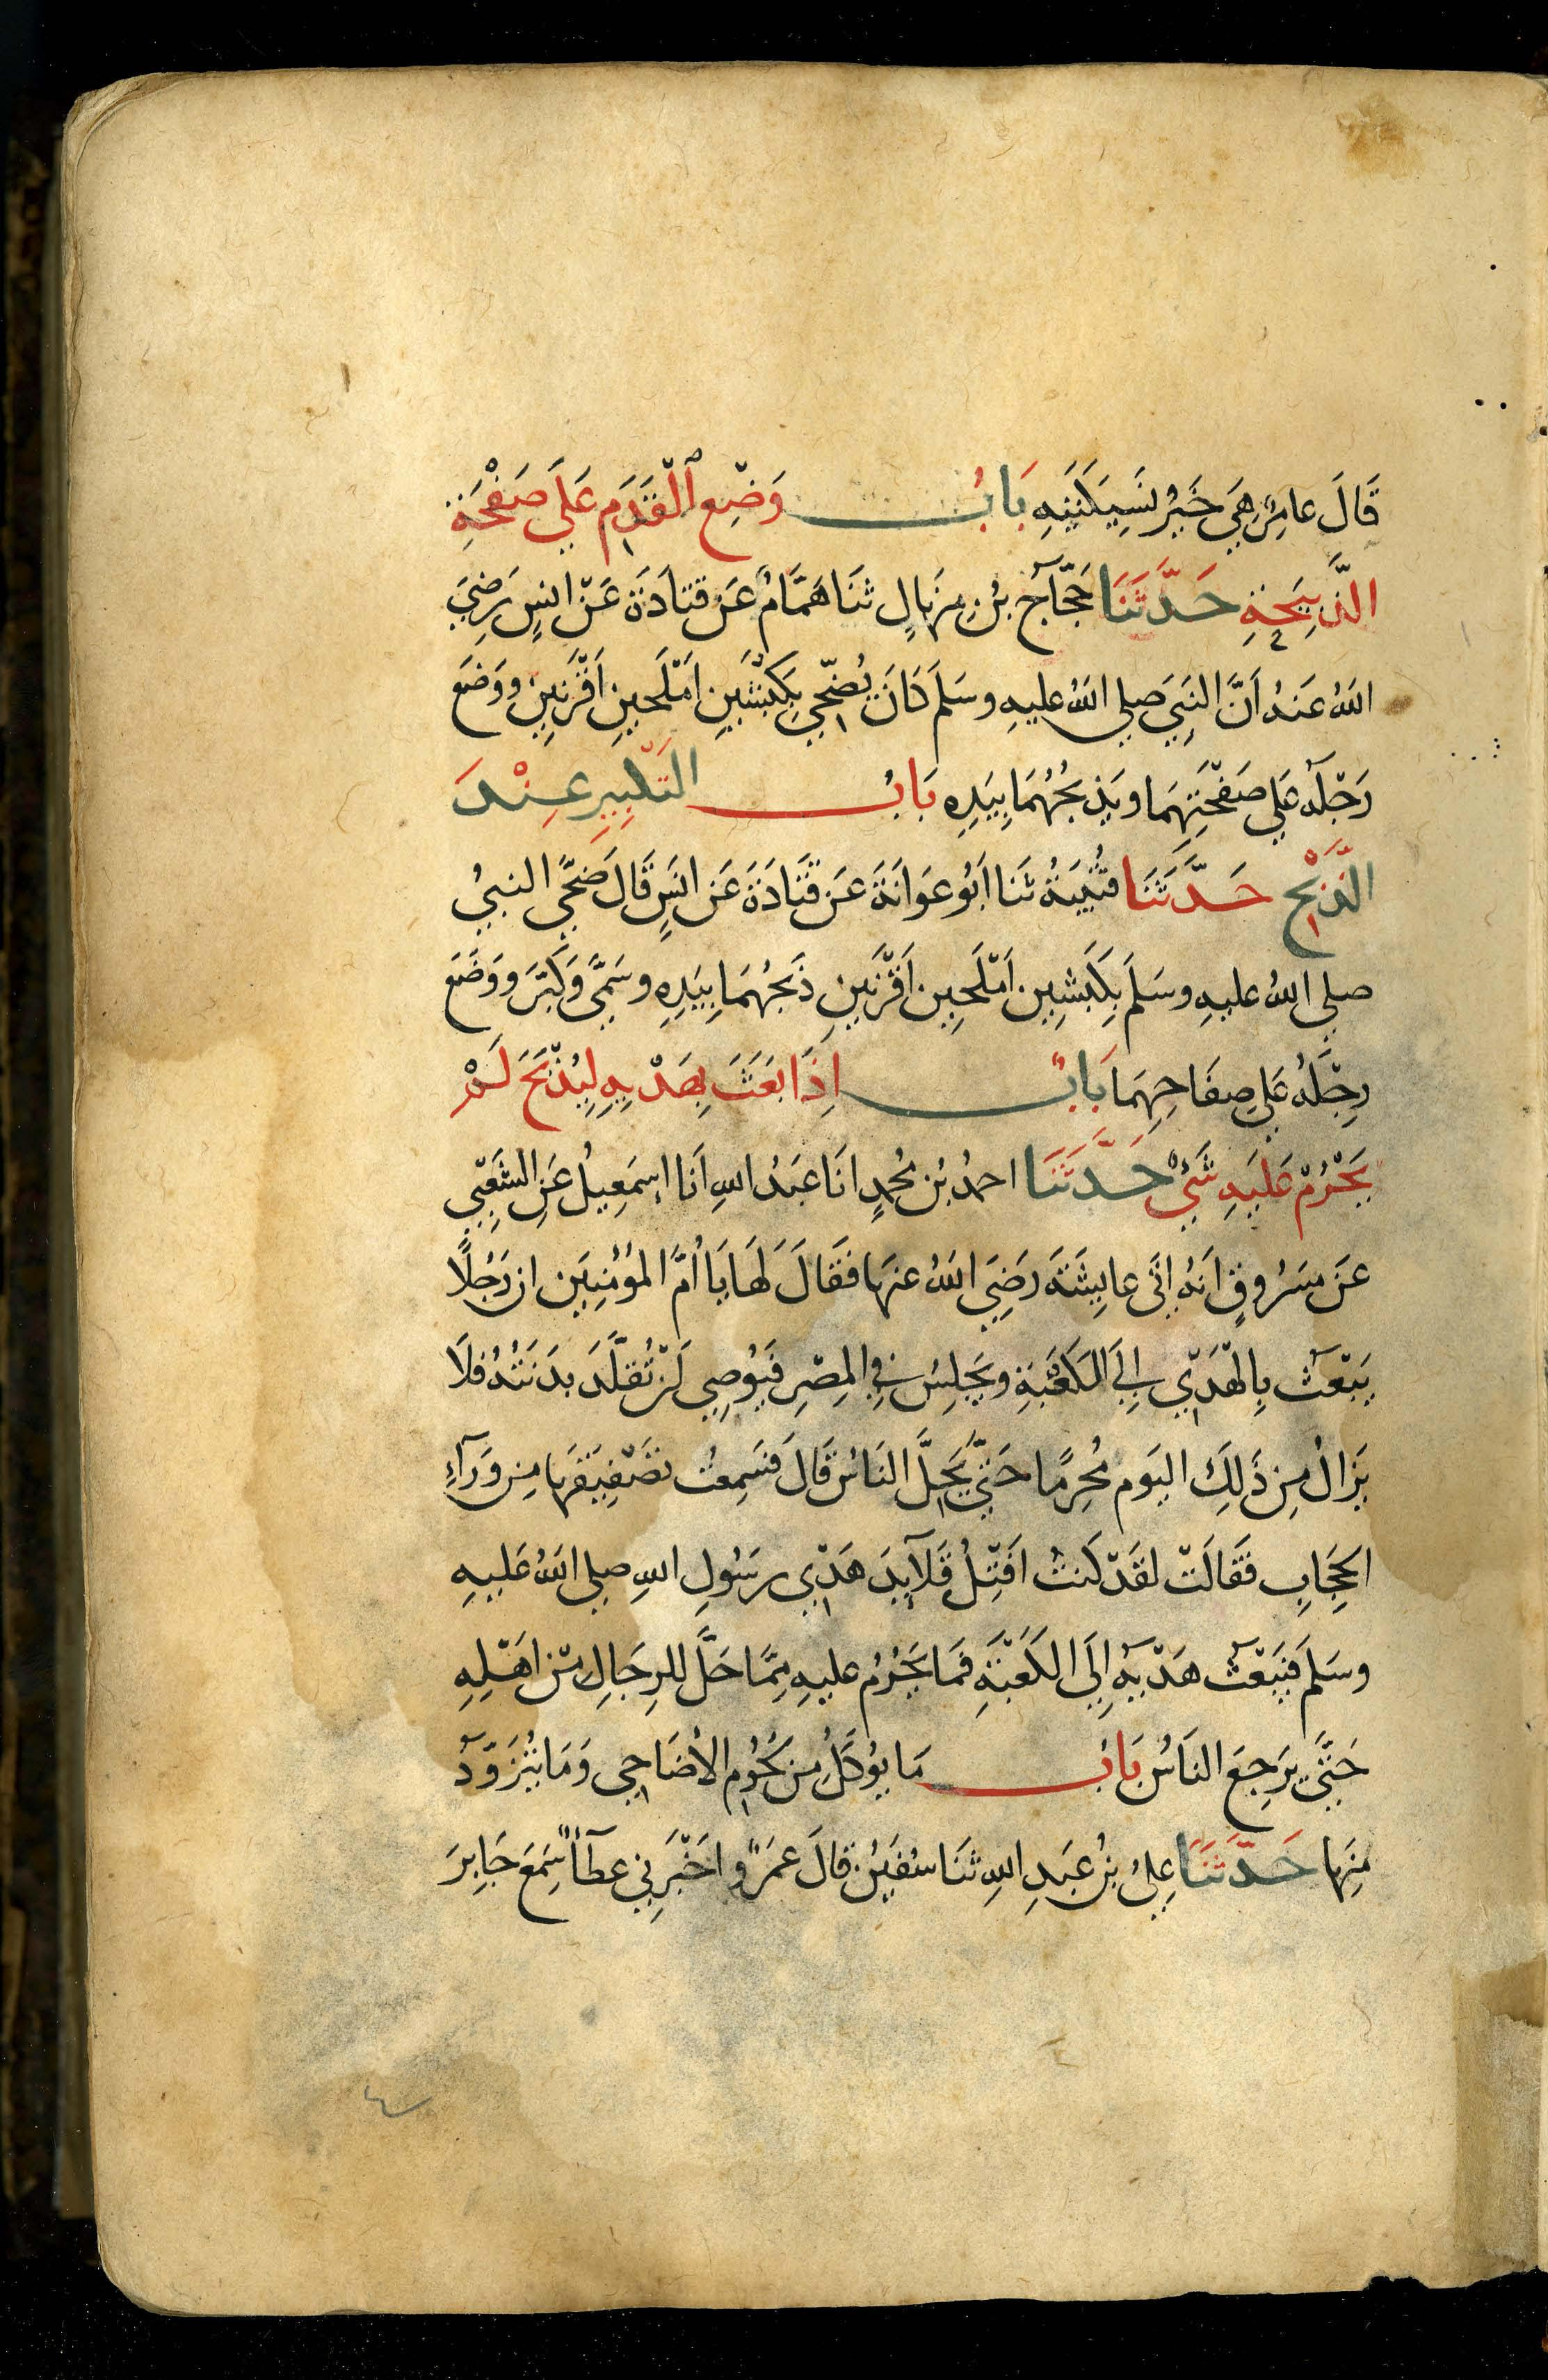 قَالَ عامِرٌ هِيَ خَيْرُ نَسِيكَتَيْهِ بَابُ وَضْعِ الْقَدَمِ عَلَى صَفْحَةِ
الذَّبِيحَةِ حَدَّثَنَا حَجَّاجُ بْنُ مِنْهَالٍ ثَنَا هَمَّامٌ عَنْ قَتادَةَ عَنْ انسٍ رَضِيَ
اللهُ عَنْهُ اَنَّ النَبِيَ صلى اللهُ عليهِ وسَلم كَانَ يُضَحِّي بِكَبْشَيْنِ اَمْلَحينِ اَقْرَنَينِ وَوَضَع
رَجْلَهُ عَلى صَفْحَتِهِمَا ويَذْبَحُهُمَا بِيَدِهِ بَابُ التَكْبِيرِ عِنْدَ
الذَّبْحِ حَدَّثَنَا قُتَيْبَةُ ثَنا اَبُو عَوَانَةَ عَن قَتَادَةَ عَن انَسٍ قَال ضَحَّى النبيُ
صلى اللهُ عليهِ وسَلَم بِكَبَشَينِ اَمْلَحينِ اَقْرَنَينِ ذَبَحُهُمَا بِيَدِهِ وسَمَّى وَكَبَّرَ ووَضَعَ
رِجْلَهُ عَلى صِفَاحِهِمَا بَابٌ اِذَا بَعَثَ بِهَدْيِهِ لِيُذْبَحَ لَمْ
يَحْرُمْ عَلَيهِ شَيْءٌ حَدَّثَنَا احمدُ بْنُ مُحمدٍ انَا عَبَدُ اللهِ اَنَا اِسمَعِيلُ عَنِ الشَعْبِي
عَنَ مَسَرُوقٍ اَنهُ اتَى عايِشَةَ رَضِيَ اللهُ عنهَا فَقَالَ لَهَا يَا اُمَّ المُؤْمِنِيَن ان رَجُلًا
يَبْعَثُ بِالْهَدْيِ اِلَى الكَعْبَةِ ويَجْلِسُ فِي المِصْرِ فَيُوصِي اَنْ تُقَلَّدَ بدَنَتُهُ فلَا
يَزَالُ مِن ذَلِكَ اليَوم مُحْرِمًا حَتَّى يَحِلَّ النَاسُ قَالَ فَسَمِعْتُ تَصْفِيقَهَا مِن وَرَآءِ
الحِجَابِ فَقَالَتْ لقَدْ كَنتُ اَفْتِلُ قَلآيِدَ هَدْيِ رسَوُلِ اللهِ صلى اللهُ عَلَيهِ
وسَلَم فَيَبْعَثُ هَدْيَهُ اِلَى الكَعْبَةِ فَمَا يَحْرُمُ عليهِ مِمَّا حَلَّ للِرِجَالِ مِنْ اهَلِهِ
حَتَّى يَرجِعَ النَاسُ بَابُ مَا يُوكَلُ مِن لحُومِ الاَضَاحِي وَمَا يُتَزَوَّدُ
مِنهَا حَدَّثَنَا عِليُ بْنُ عَبَدِ اللهِ ثنَا سُفيَنُ قَالَ عَمَرٌو اخَبَرَنِي عطآٌ سَمَعَ جَابِرَ